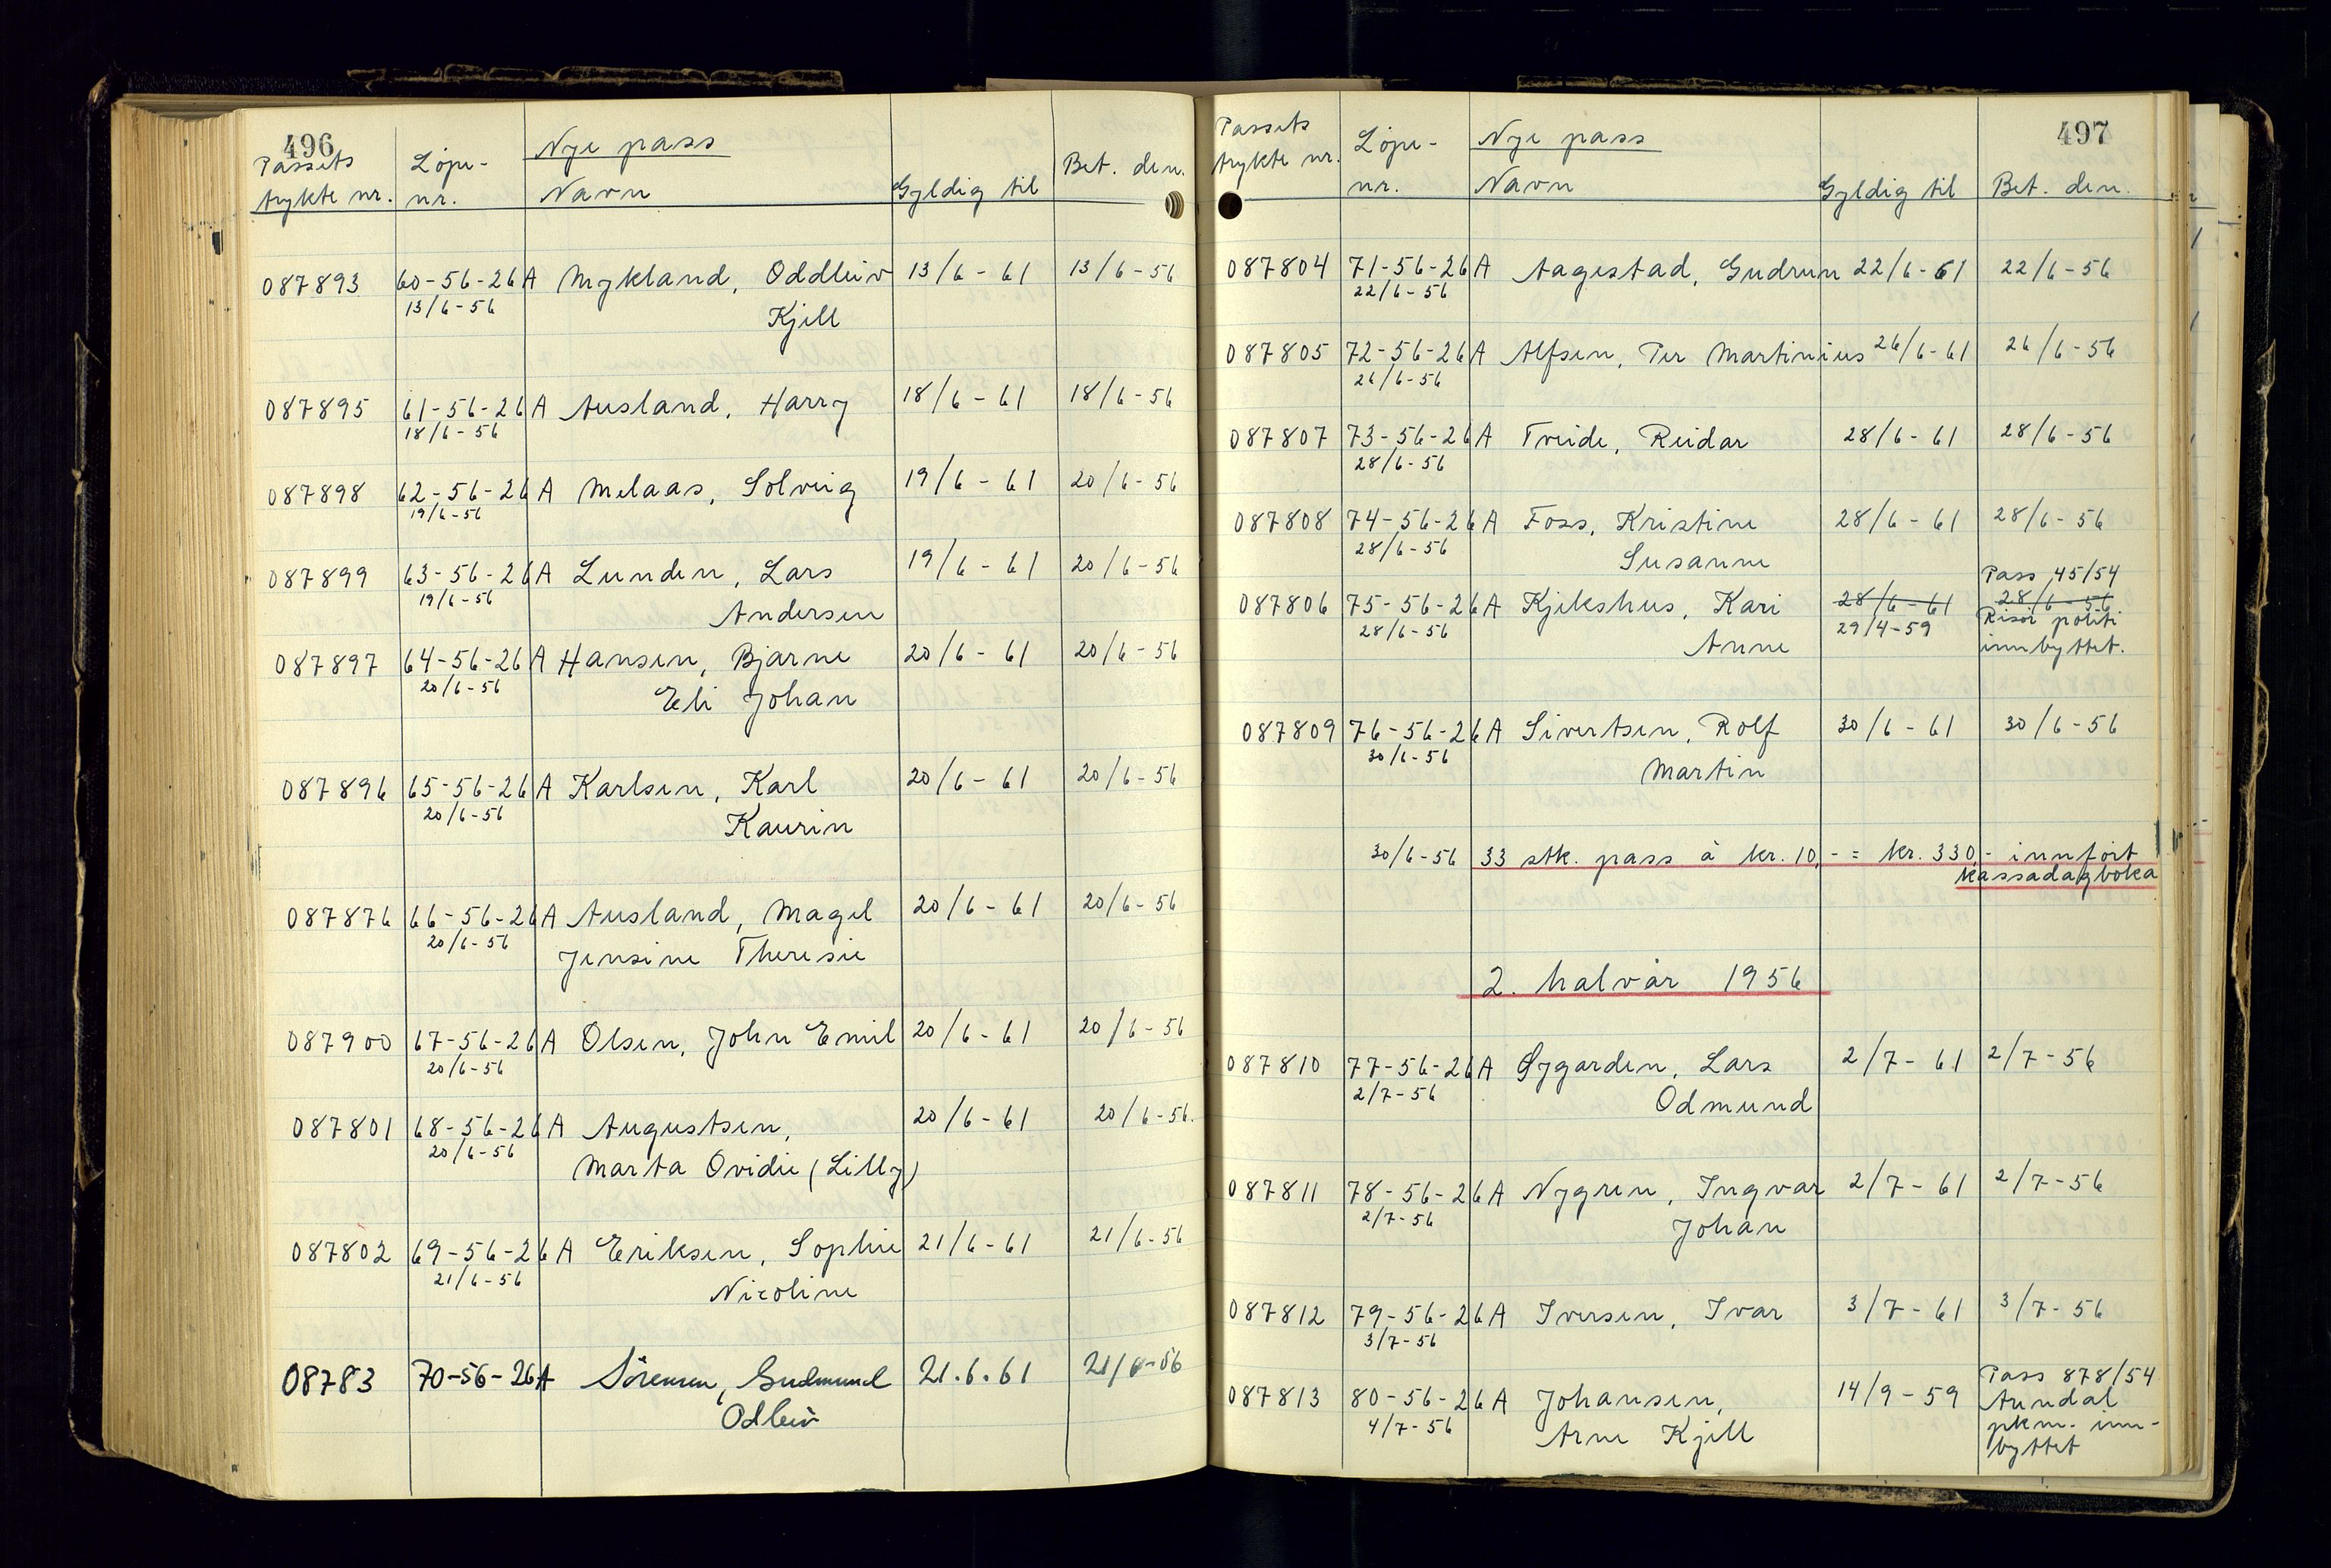 496
Nye pass
Passets trykte nr. Løpe-nr. Navn Gyldig til Bet. den.
087893 60-56-26A Mykland, Oddleiv 13/6-61 13/6-56
13/6-56 Kjell
087895 61-56-26A Ausland, Harry 18/6-61 18/6-56
18/6-56
087898 62-56-26A Melaas, Solveig 19/6-61 20/6-56
19/6-56
087899 63-56-26A Lunden, Lars 19/6-61 20/6-56
19/6-56 Andersen
087897 64-56-26A Hansen, Bjarne 20/6-61 20/6-56
20/6-56 Eli Johan
087896 65-56-26A Karlsen, Karl 20/6-61 20/6-56
20/6-56 Kaurin
087876 66-56-26A Ausland, Magel 20/6-61 20/6-56
20/6-56 Jensine Theresie
087900 67-56-26A Olsen, John Emil 20/6-61 20/6-56
20/6-56
087801 68-56-26A Augustsen, 20/6-61 20/6-56.
20/6-56 Marta Ovidie (Lilly)
087802 69-56-26A Eriksen, Sophie 21/6-61 21/6-56
21/6-56 Nicoline
08783 70-56-26A Sörensen, Gudmund 21.6.61 21/6-56
Odleiv
497
Nye pass
Passets trykte nr. Løpe-nr. Navn Gyldig til Bet. den.
087804 71-56-26A Aagestad, Gudrun 22/6-61 22/6-56
22/6-56
087805 72-56-26A Alfsen, Per Martinius 26/6-61 26/6-56
26/6-56
087807 73-56-26A Tveide, Reidar 28/6-61 28/6-56
28/6-56
087808 74-56-26A Foss, Kristine 28/6-61 28/6-56
28/6-56 Susanne
Pass 45/54
087806 75-56-26A Kjekshus, Kari 28/6-61 28/6-56
28/6-56 Anne 29/4-59 Risør politi
innbyttet.
087809 76-56-26A Sivertsen, Rolf 30/6-61 30/6-56
30/6-56 Martin
30/6-56 33 stk. pass à kr. 10,- = kr. 330,- innført
kassadagboka
2. halvår 1956
087810 77-56-26A Øygarden, Lars 2/7-61 2/7-56
2/7-56 Odmund
087811 78-56-26A Nygren, Ingvar 2/7-61 2/7-56
2/7-56 Johan
087812 79-56-26A Iversen, Ivar 3/7-61 3/7-56
3/7-56
Pass 878/54
087813 80-56-26A Johansen, 14/9-59 Arendal
4/7-56 Arne Kjell pkm. inn-
byttet